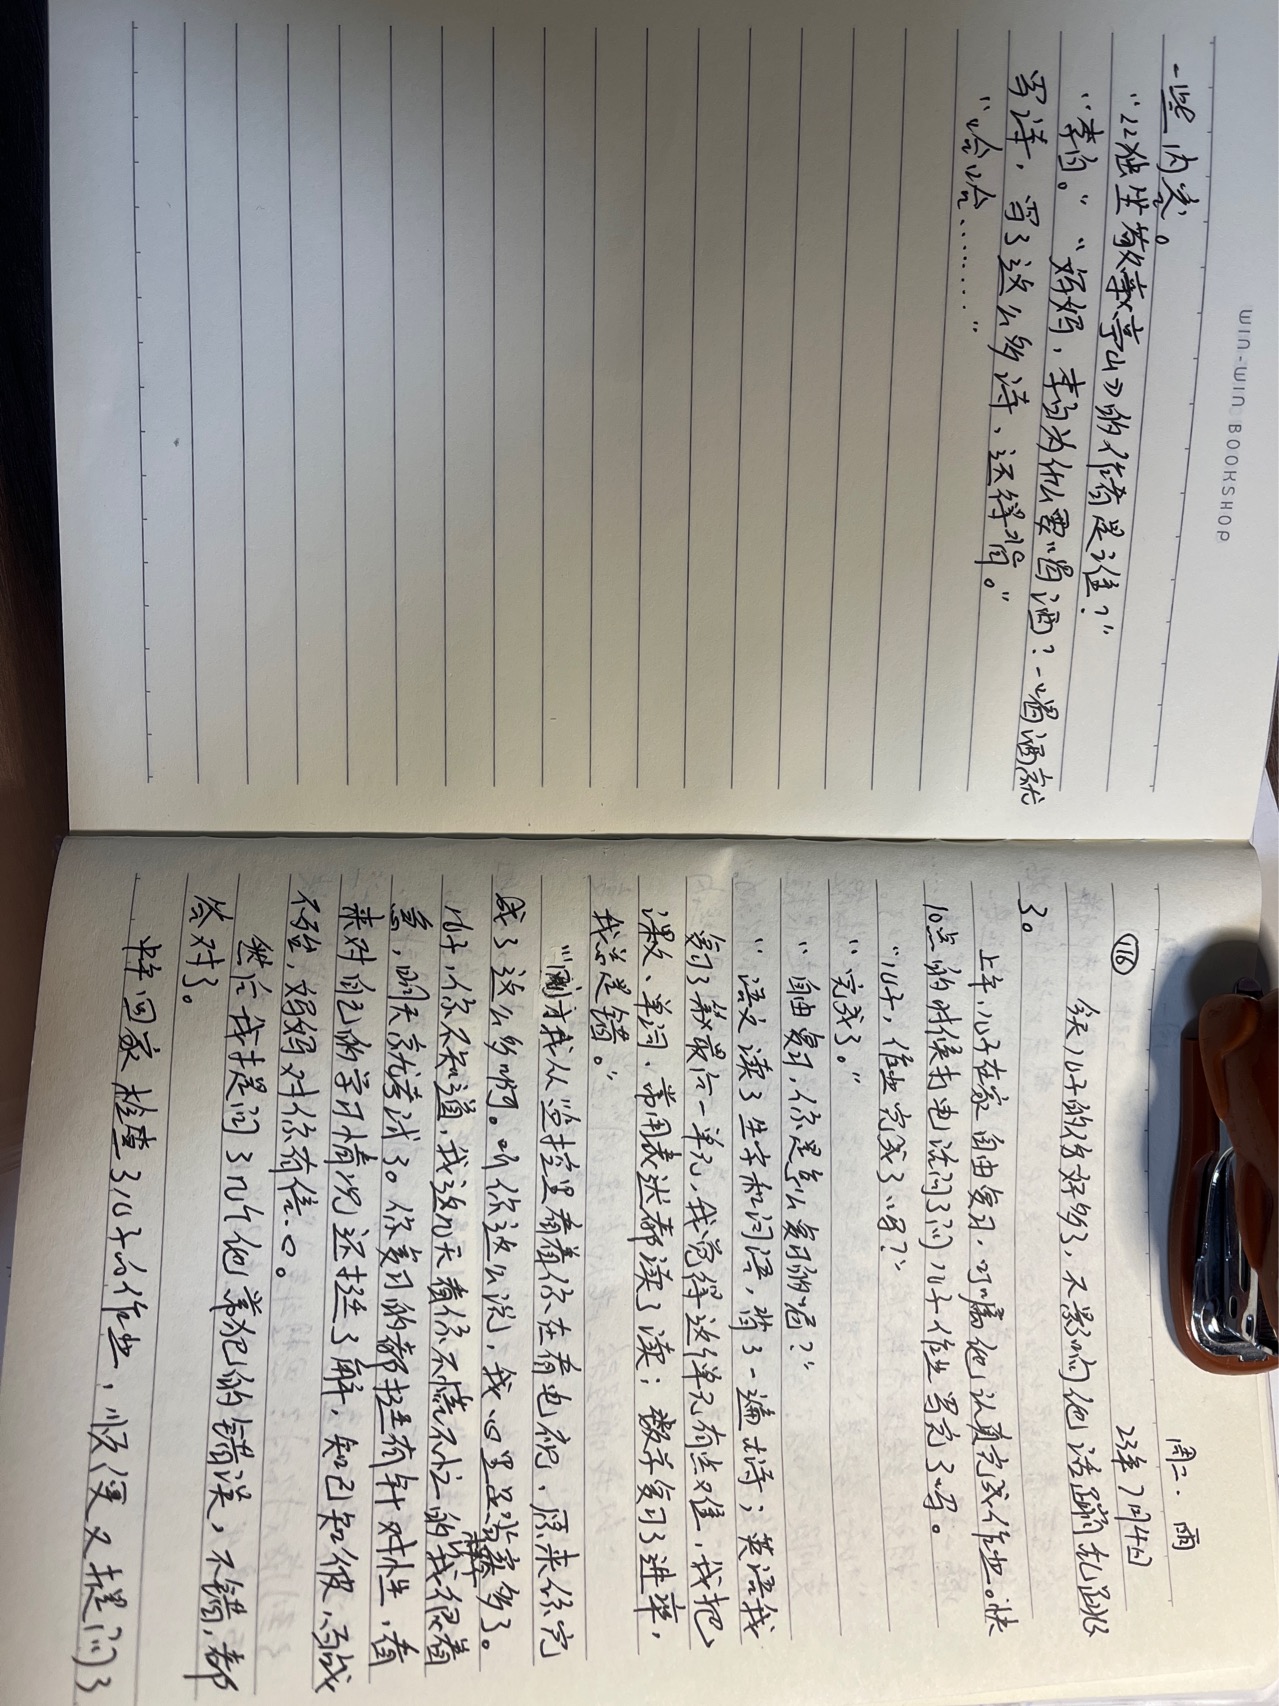 WIN-WIN BOOKSHOP
一些内容。
“《独坐敬亭山》的作者是谁？”
“李白。”“妈妈，李白为什么要喝酒？一喝酒就
写诗，写了这么多诗、还得背。”
“哈哈………”
周二. 雨
23年7月4日
116
今天儿子的伤好多了，不影响他活蹦乱跳
了。
上午，儿子在家自由复习，叮嘱他认真完成作业。快
10点的时候打电话问了问儿子作业写完了吗。
“儿子，作业完成了吗？”
“完成了。”
“自由复习，你是怎么复习的呢？”
“语文读了生字和词语，背了一遍古诗；英语我
复习了最后一单元，我觉得这个单元有点难，我把
课文、单词、常用表达都读了读；数学复习了进率，
我总是错。”
“刚才我从监控里看着你在看电视、原来你完
成了这么多啊。听你这么说，我心里踏实多了。
儿子，你不知道，我这几天看你不慌不忙的我很着
急，明天就考试了。你复习的都挺有针对性，看
来对自己的学习情况还挺了解，知己知彼，百战
不殆，妈妈对你有信心。
然后我提问了几个他常犯的错误，不错，都
答对了。
中午回家检查了儿子的作业，顺便又提问了